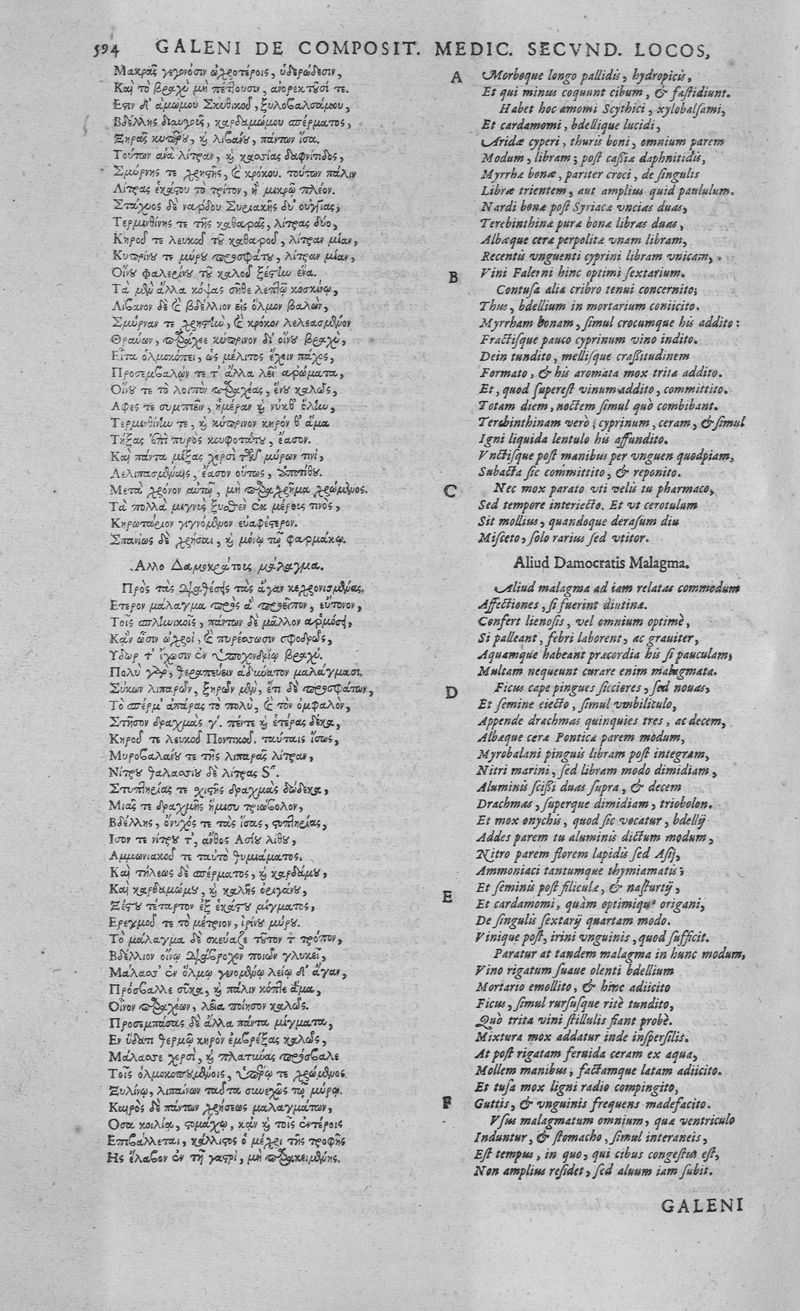 594 GALENI DE COMPOSIT. MEDIC. SECVND. LOCOS,
Μακραῖς γεγονόσιν ὠχροτέροις, ὑδερώδεσιν,
Καὶ τὸ βραχὺ μὴ πέττουσιν, ἀνορεκτοῦσί τε.
Εστιν δ' ἀμώμου Σκυθικοῦ, ξυλοβαλσάμου,
Βδέλλης διαυγοῦς, καρδαμώμου σπέρματος,
Ξηρᾶς κυπέρου, καὶ λιβάνου, πάντων ἴσα.
Τούτων ἀνὰ λίτραν, καὶ κασίας δαφνίτιδος,
Σμύρνης τε χρηστῆς, καὶ κρόκου. τούτων πάλιν
Λίτρας ἑκάστου τὸ τρίτον, ἢ μικρῷ πλέον.
Στάχυος δὲ νάρδου Συριακῆς δύ' οὐγγίας,
Τερμινθίνης τε τῆς καθαρᾶς, λίτρας δύο,
Κηροῦ τε λευκοῦ τοῦ καθαροῦ, λίτραν μίαν,
Κυπρίνου τε μύρου προσφάτου, λίτραν μίαν,
Οἴνου φαλερίνου τοῦ καλοῦ ξέστην ἕνα.
Τὰ μὲν ἄλλα κόψας σῆθε λεπτῷ κοσκίνῳ,
Λίβανον δὲ καὶ βδέλλιον εἰς ὅλμον βαλὼν,
Σμύρναν τε χρηστὴν, καὶ κρόκον λελεασμένον
Θραύων, παράχεε κύπρινον δι' οἴνου βραχὺ,
Εἶτα ὁλμοκόπει, ὡς μέλιτος ἔχειν πάχος,
Προσεμβαλών τε τ' ἄλλα λεῖ' ἀρώματα,
Οἴνου τε τὸ λοιπὸν παραχέας, ἑνοῦ καλῶς,
Αφες τε συμπιεῖν, ἡμέραν καὶ νύκθ' ὅλην,
Τερμινθίνην τε, καὶ κύπρινον κηρόν θ' ἅμα
Τήξας ἐπὶ πυρὸς κουφοτάτου, ἔασον.
Καὶ πάντα μίξας χερσὶ τῶν μύρων τινὶ,
Λελιπασμέναις, ἔασον οὕτως, ὑποτίθου.
Μετὰ χρόνον αὐτῷ, μὴ παραχρῆμα χρώμενος.
Τὰ πολλὰ μιγνὺς ξυσθὲν ἐκ μέρους τινὸς,
Κηρωτάριον γιγνόμενον εὐαφέστερον.
Σπανίως δὲ χρῆσαι, καὶ μόνῳ τῷ φαρμάκῳ.
Αλλο Δαμοκράτους μάλαγμα.
Πρὸς τὰς διαθέσεις τὰς ἄγαν κεχρονισμένας,
Ετερον μάλαγμα πρὸς ἃ προεῖπον, εὔτονον,
Τοῖς σπληνικοῖς, πάντων δὲ μᾶλλον ἁρμόσῃ,
Κἂν ὦσιν ὠχροὶ, καὶ πυρέσσωσιν σφοδρῶς,
Υδωρ τ' ἔχωσιν ἐν ὑποχονδρίῳ βραχὺ.
Πολὺ γὰρ, θεραπεύειν ἀδύνατον μαλάγμασι.
Σύκων λιπαρῶν, ξηρῶν μὲν, ἔτι δὲ προσφάτων,
Τὸ σπέρμ' ἀπάρας τὸ πολὺ, καὶ τὸν ὀμφαλὸν,
Στῆσον δραχμὰς γ'. πέντε καὶ ἑτέρας δέκα,
Κηροῦ τε λευκοῦ Ποντικοῦ. ταύταις ἴσως,
Μυροβαλάνου τε τῆς λιπαρᾶς λίτραν,
Νίτρου θαλασσίου δὲ λίτρας S".
Στυπτηρίας τε σχιστῆς δραχμὰς δώδεκα,
Μιᾶς τε δραχμῆς ἥμισυ τριώβολον,
Βδέλλης, ὄνυχός τε τὰς ἴσας, στυπτηρίας,
Ισον τε νίτρου τ', ἄνθος Ασίου λίθου,
Αμμωνιακοῦ τε ταὐτὸ θυμιάματος.
Καὶ τήλεως δὲ σπέρματος, καὶ καρδάμου,
Καὶ καρδαμώμου, καὶ καλῆς ὀριγάνου,
Ξέστου τέταρτον ἐξ ἑκάστου μίγματος,
Ερεγμοῦ τε τὸ μέτριον, ἰρίνου μύρου.
Τὸ μάλαγμα δὲ σκεύαζε τοῦτον τὸν τρόπον,
Βδέλλιον οἴνῳ διάβροχον ποιῶν γλυκεῖ,
Μάλασσ' ἐν ὅλμῳ γενομένῳ λείῳ δ' ἄγαν,
Πρόσβαλλε σῦκα, καὶ πάλιν κόπτε ἅμα,
Οἶνον παραχέων, λεῖα ποίησον καλῶς.
Προσεμπάσας δὲ ἄλλα πάντα μίγματα,
Εν ὕδατι θερμῷ κηρὸν ἐμβρέξας καλῶς,
Μάλασσε χερσὶ, καὶ πλατύνας πρόσβαλε
Τοῖς ὁλμοκοπουμένοις, ὑπέρῳ τε χρώμενος
Ξυλίνῳ, λιπαίνων ταῦτα συνεχῶς τῷ μύρῳ.
Καιρὸς δὲ πάντων χρήσεως μαλαγμάτων,
Οσα κοιλίᾳ, στομάχῳ, κἂν καὶ τοῖς ἐντέροις
Επιβάλλεται, κάλλιστος ὁ μέχρι τῆς τροφῆς
Ης ἔλαβον ἐν τῇ γαστρὶ, μὴ παρακειμένης.
A Morboque longo pallidis, hydropicis,
Et qui minus coquunt cibum, & fastidiunt.
Habet hoc amomi Scythici, xylobalsami,
Et cardamomi, bdellique lucidi,
Aridæ cyperi, thuris boni, omnium parem
Modum, libram; post cassiæ daphnitidis,
Myrrhæ bonæ, pariter croci, de singulis
Libræ trientem, aut amplius quid paululum.
Nardi bonæ post Syriacæ vncias duas,
Terebinthinæ puræ bonæ libras duas,
Albæque ceræ perpolitæ vnam libram,
Recentis vnguenti cyprini libram vnicam,
B Vini Falerni hinc optimi sextarium.
Contusa alia cribro tenui concernito;
Thus, bdellium in mortarium coniicito.
Myrrham bonam, simul crocumque his addito:
Fractisque pauco cyprinum vino indito.
Dein tundito, mellisque crassitudinem
Formato, & his aromata mox trita addito.
Et, quod superest vinum addito, committito.
Totam diem, noctem simul quò combibant.
Terebinthinam verò, cyprinum, ceram, & simul
Igni liquida lentulo his affundito.
Vnctisque post manibus per vnguen quodpiam,
Subacta sic committito, & reponito.
C Nec mox parato vti velis tu pharmaco,
Sed tempore interiecto. Et vt cerotulum
Sit mollius, quandoque derasum diu
Misceto, solo rarius sed vtitor.
Aliud Damocratis Malagma.
Aliud malagma ad iam relatas commodum
Affectiones, si fuerint diutinæ.
Confert lienosis, vel omnium optimè,
Si palleant, febri laborent, ac grauiter,
Aquamque habeant præcordia his si pauculam,
Multam nequeunt curare enim malagmata.
D Ficus cape pingues sicciores, sed nouas,
Et semine eiecto, simul vmbiliculo,
Appende drachmas quinquies tres, ac decem,
Albæque ceræ Ponticæ parem modum,
Myrobalani pinguis libram post integram,
Nitri marini, sed libram modo dimidiam,
Aluminis scissi duas supra, & decem
Drachmas, superque dimidiam, triobolon.
Et mox onychis, quod sic vocatur, bdellij
Addes parem tu aluminis dictum modum,
Nitro parem florem lapidis sed Asij,
Ammoniaci tantumque thymiamatis;
Et seminis post siliculæ, & nasturtij,
E Et cardamomi, quàm optimique origani,
De singulis sextarij quartam modo.
Vinique post, irini vnguinis, quod sufficit.
Paratur at tandem malagma in hunc modum,
Vino rigatum suaue olenti bdellium
Mortario emollito, & hinc adiicito
Ficus, simul rursusque ritè tundito,
Quò trita vini stillulis fiant probè.
Mixtura mox addatur inde inspersilis.
At post rigatam feruida ceram ex aqua,
Mollem manibus, factamque latam adiicito.
Et tusa mox ligni radio compingito,
F Guttis, & vnguinis frequens madefacito.
Vsus malagmatum omnium, quæ ventriculo
Induntur, & stomacho, simul interaneis,
Est tempus, in quo, qui cibus congestus est,
Non amplius residet, sed aluum iam subit.
GALENI